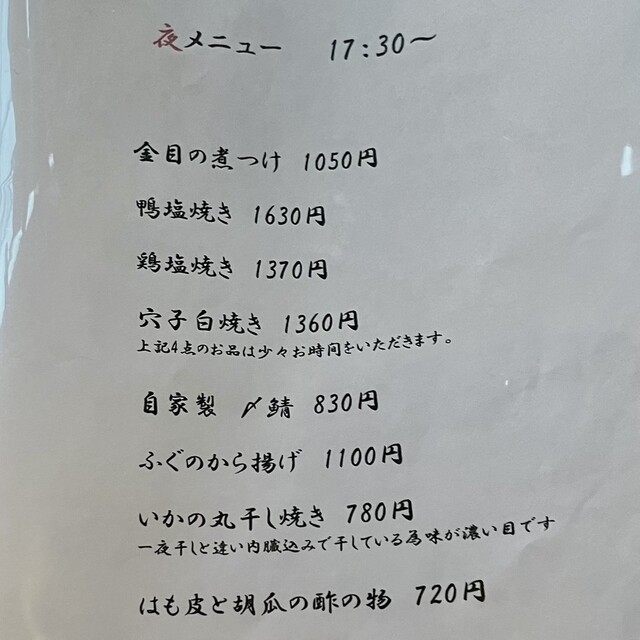 夜メニュー 17:30～
金目の煮つけ 1050円
鴨塩焼き 1630円
鶏塩焼き 1370円
穴子白焼き 1360円
上記4点のお品は少々お時間をいただきます。
自家製 〆鯖 830円
ふぐのから揚げ 1100円
いかの丸干し焼き 780円
一夜干しと違い内臓込みで干している為味が濃い目です
はも皮と胡瓜の酢の物 720円